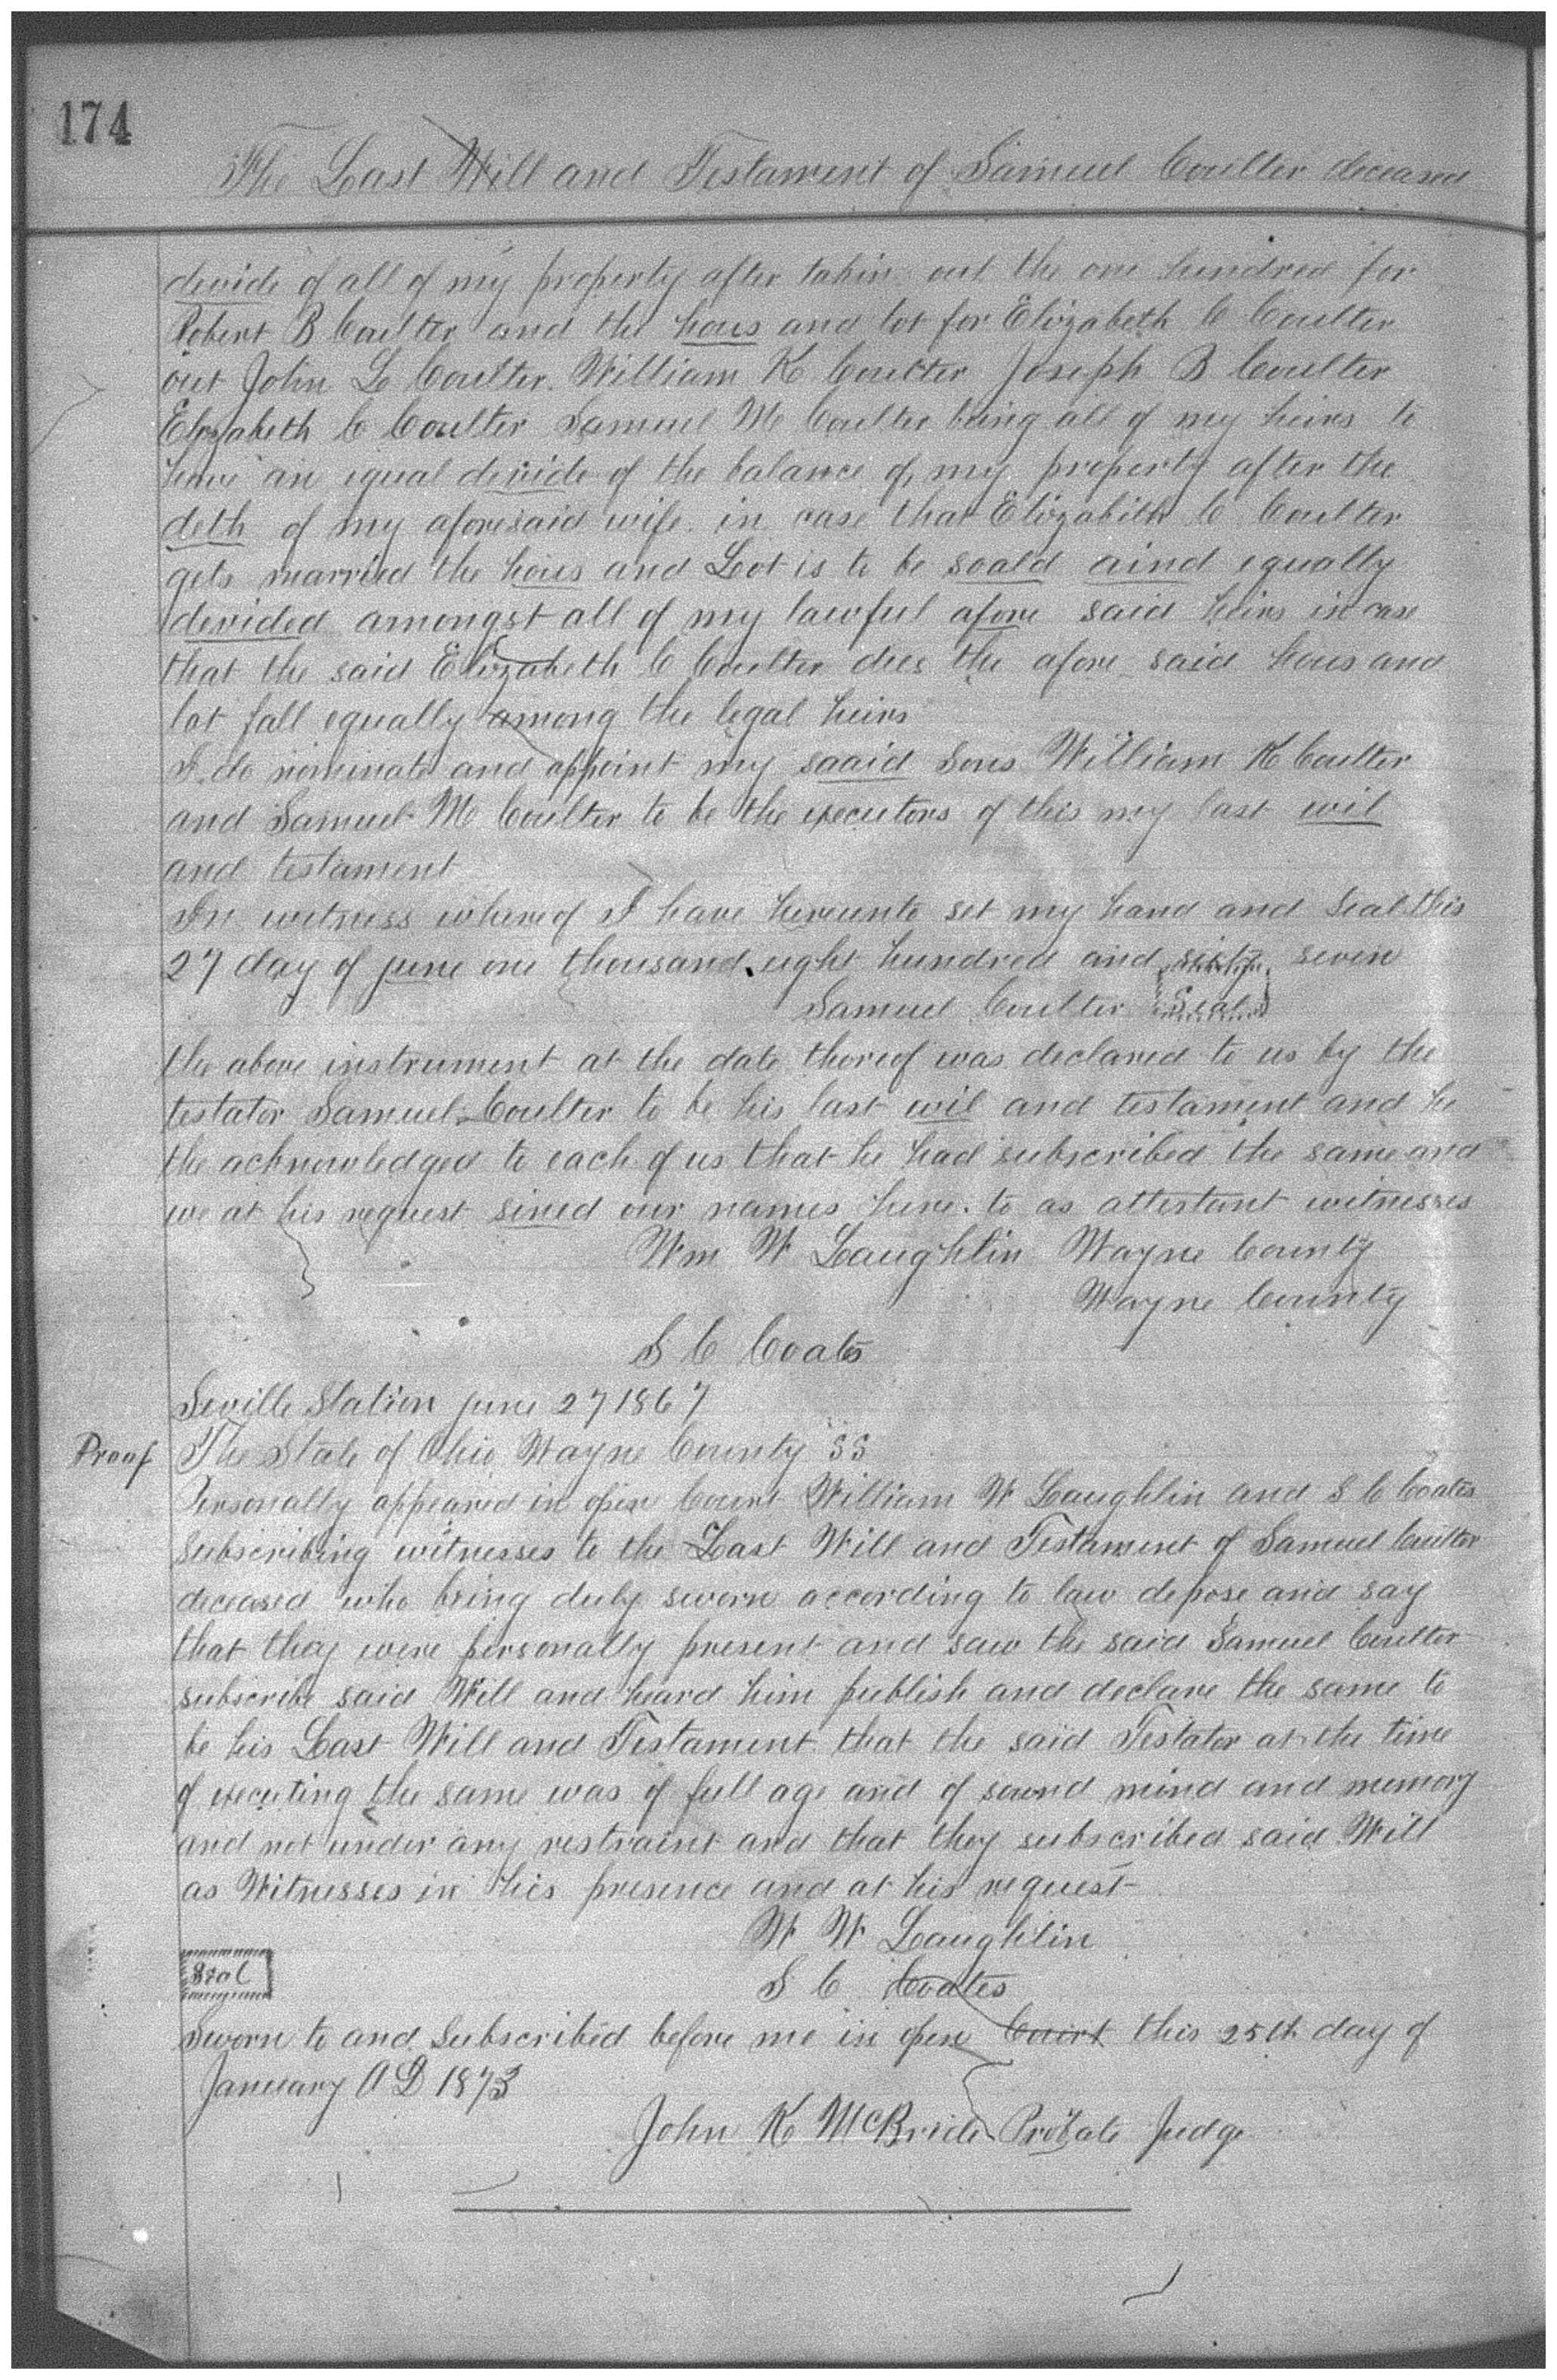 174
The Last Will and Testament of Samuel Coulter deceased
devide of all of my property after takin out the one hundred for
Robert B Coulter and the hous and lot for Elizabeth C Coulter
out John L Coulter. William K Coulter Joseph B Coulter
Elizabeth C Coulter Samuel M Coulter being all of my heirs to
have an equal devide of the balance of my property after the
deth of my aforesaid wife. in case that Elizabeth C Coulter
gets married the hous and Lot is to be soald aind equally
devided amongst all of my lawful afore said heirs in case
that the said Elizabeth C Coulter dies the afore said hous and
lot fall equally among the legal heirs
I do nominate and appoint my saaid Sons William K Coulter
and Samuel M Coulter to be the executors of this my last wil
and testament
In witness whereof I have hereunto set my hand and Seal this
27 day of june one thousand eight hundred and sixty seven
Samuel Coulter Seal
the above instrument at the date thereof was declared to us by the
testator Samuel Coulter to be his last wil and testament and he
the acknowledged to each of us that he had subscribed the same and
we at his request sined our names here to as attestant witnesses
Wm W Laughlin Wayne County
Wayne County
S C Coates
Seville Station june 27 1867
Proof The State of Ohio Wayne County SS
Personally appeared in open Court William W Laughlin and S C Coates
subscribing witnesses to the Last Will and Testament of Samuel Coulter
deceased who being duly sworn according to law depose and say
that they were personally present and saw the said Samuel Coulter
subscribe said Will and heard him publish and declare the same to
be his Last Will and Testament that the said Testator at the time
of executing the same was of full age and of sound mind and memory
and not under any restraint and that they subscribed said Will
as Witnesses in his presence and at his request
W W Laughlin
Seal
S C Coates
Sworn to and Subscribed before me in open Court this 25th day of
January A D 1873
John K McBride Probate Judge